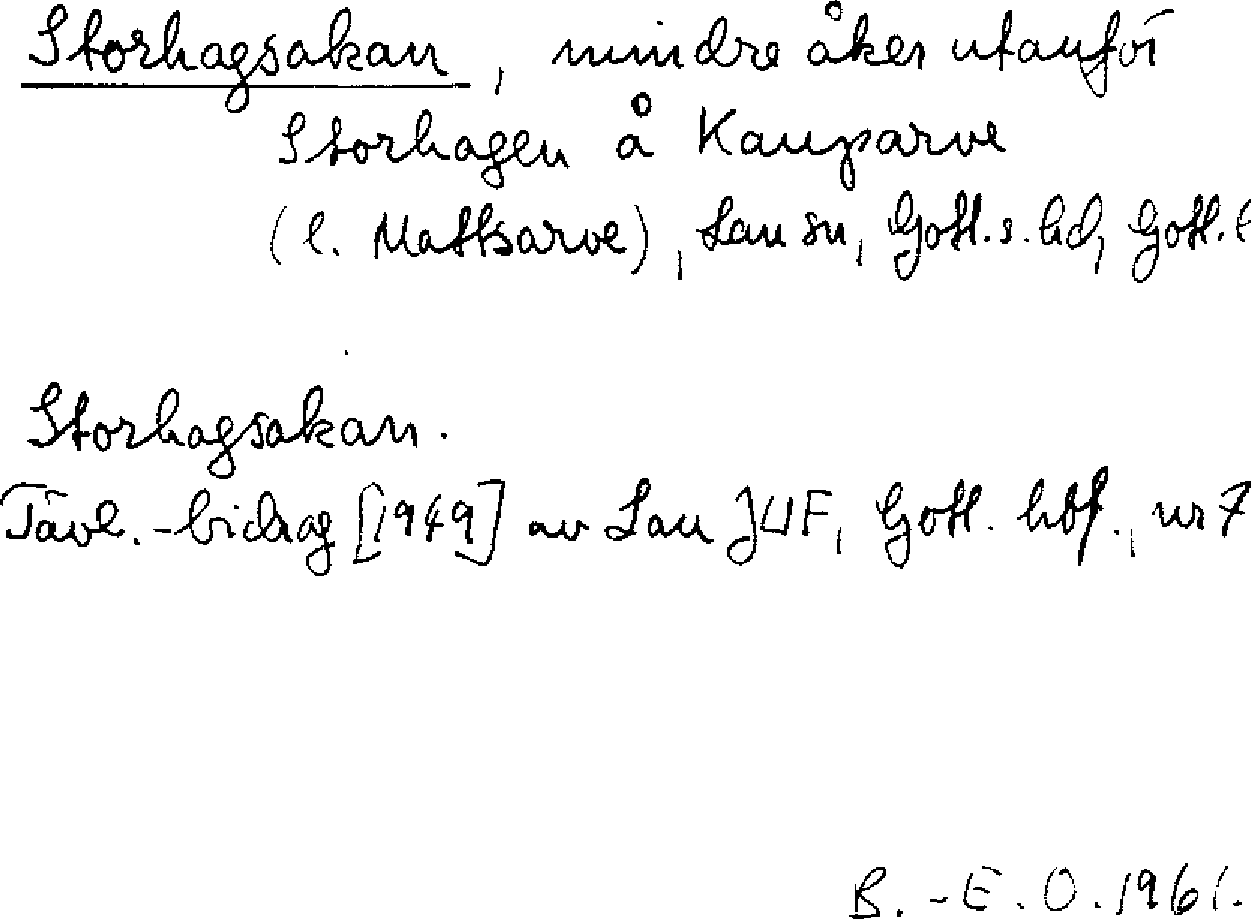 Storhagsakan, mindre åker utanför
Storhagen å Kauparve
(l. Mattsarve), Lau sn, Gotl. s. hd, Gotl. l
Storhagsakan.
Tävl.-bidrag [1949] av Lau JUF, Gotl. hbf., nr 7
B.-E. O. 1961.